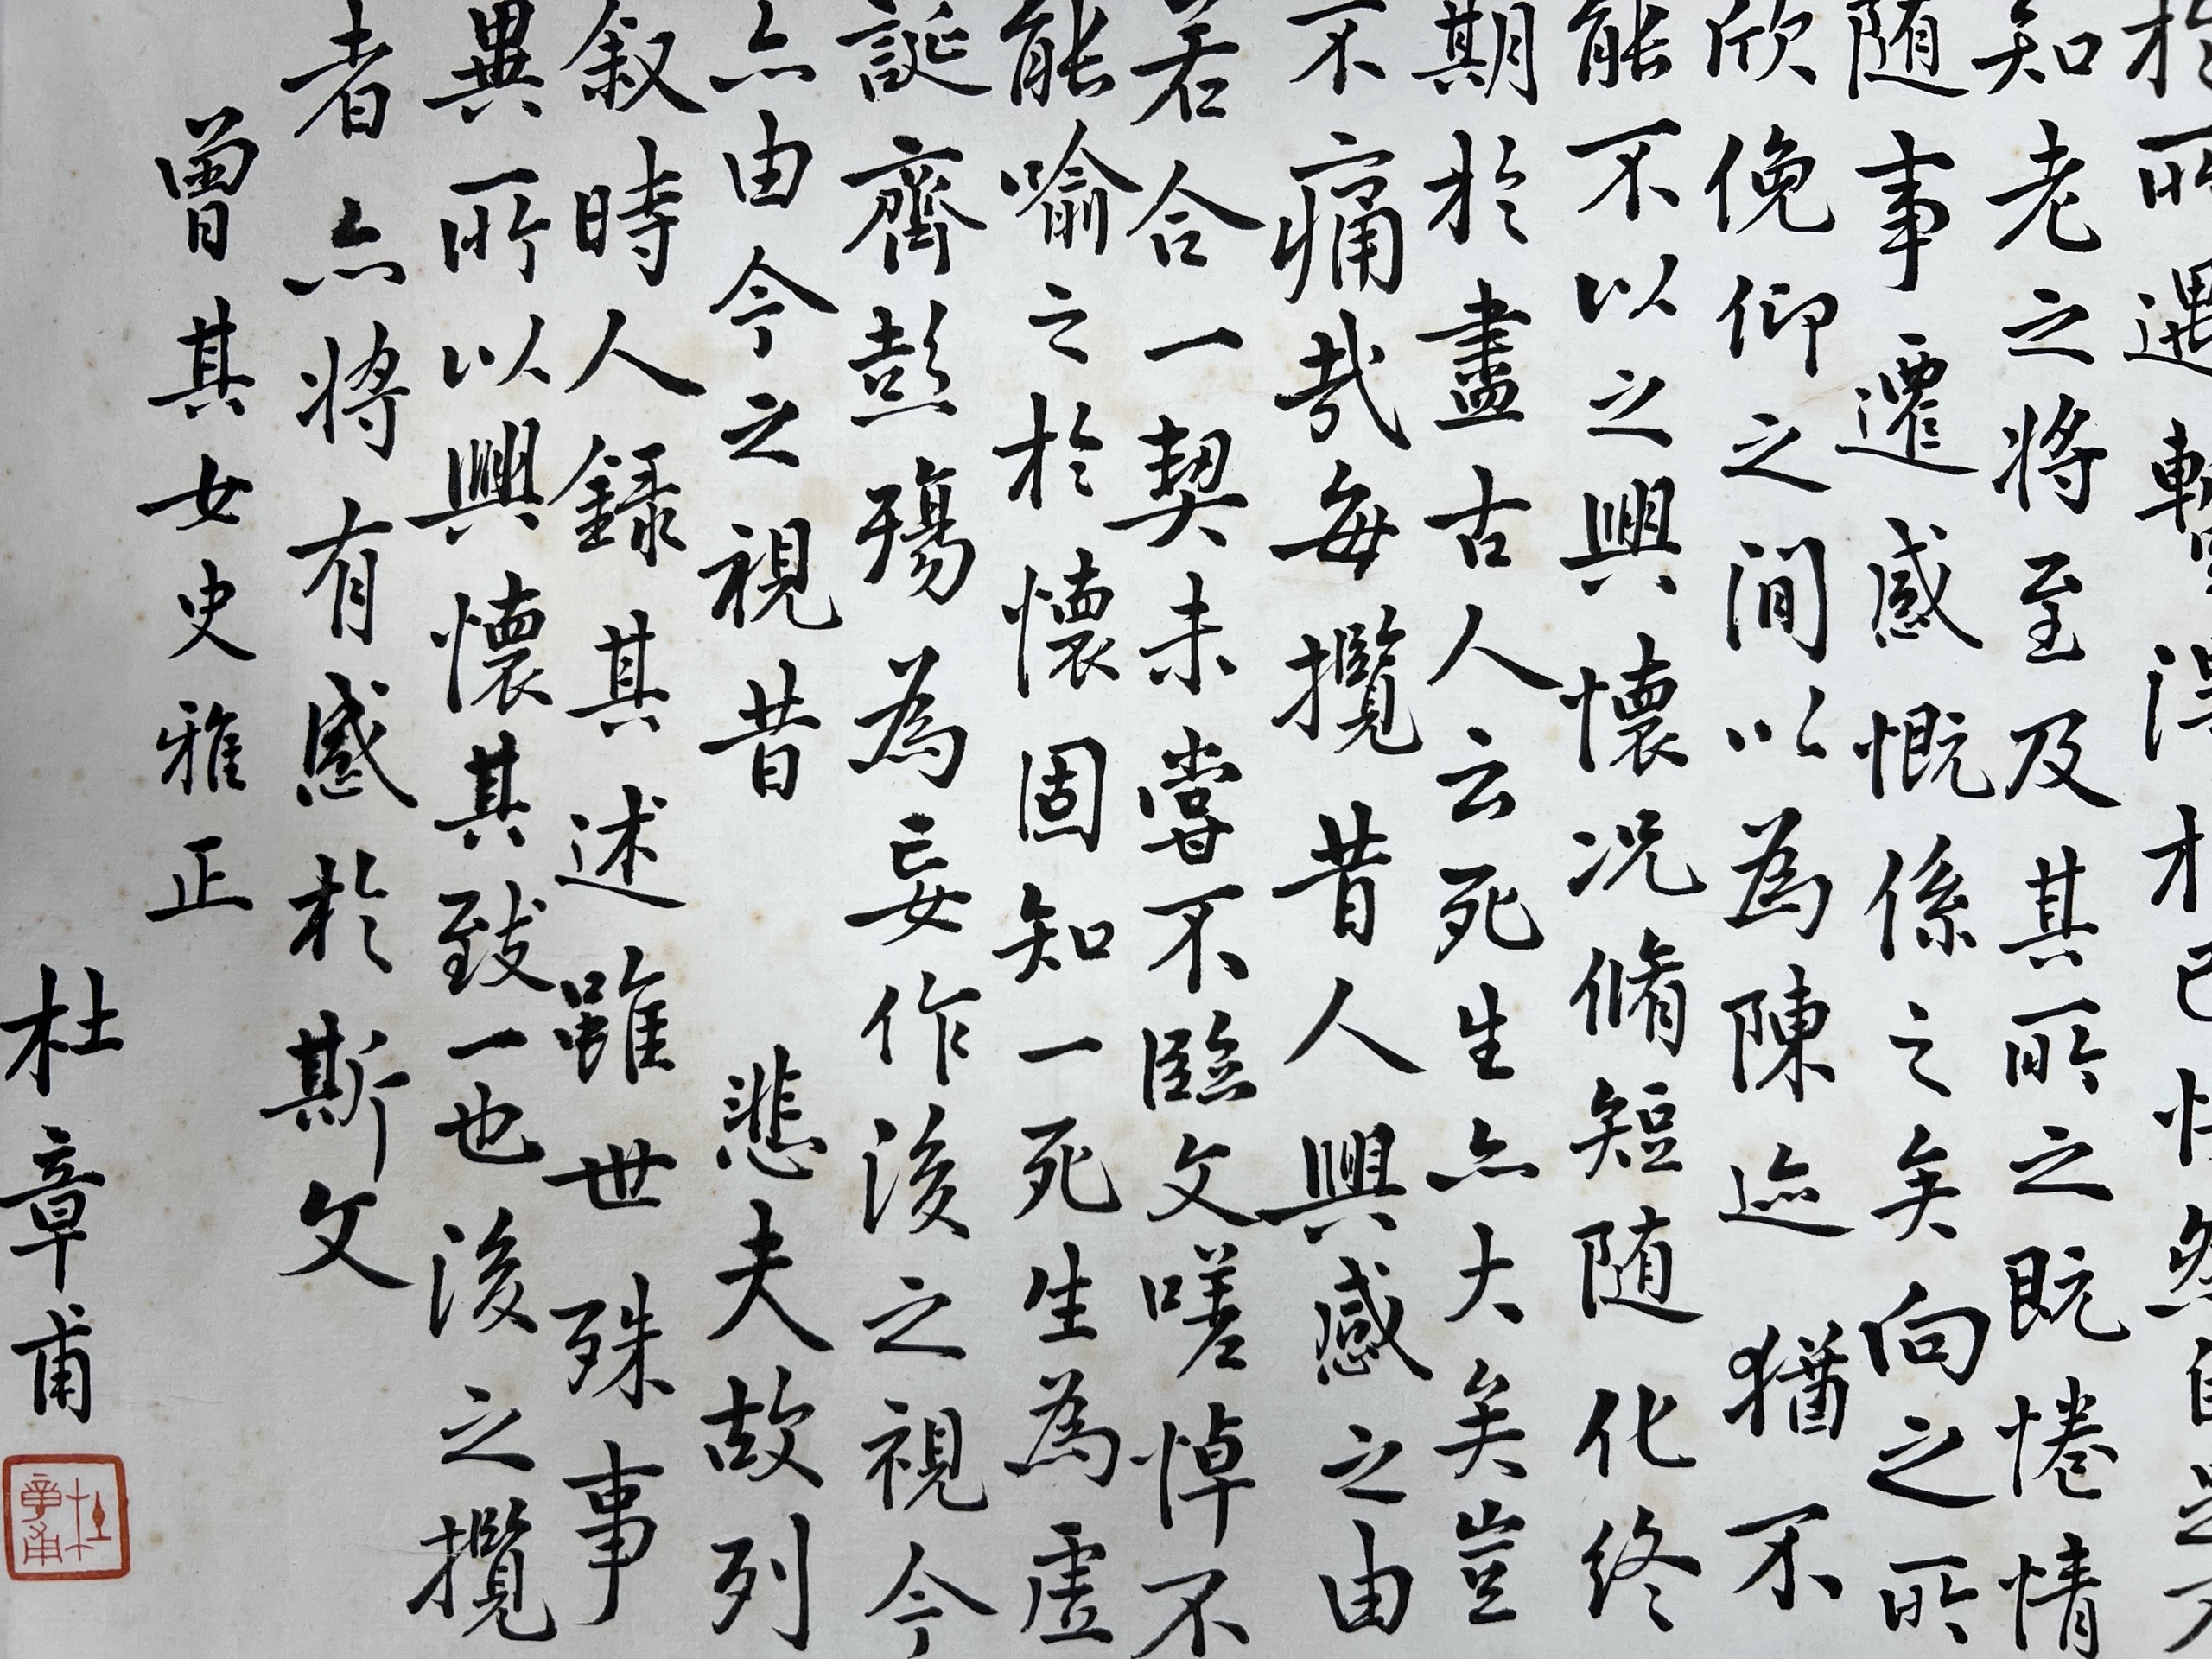 於所遇輒得於己快然自足不
知老之將至及其所之既惓情
随事遷感慨係之矣向之所
欣俛仰之閒以為陳迹猶不
能不以之興懷况脩短随化終
期於盡古人云死生亦大矣豈
不痛哉每攬昔人興感之由
若合一契未嘗不臨文嗟悼不
能喻之於懷固知一死生為虛
誕齊彭殤為妄作後之視今
亦由今之視昔 悲夫故列
叙時人錄其述雖世殊事
異所以興懷其致一也後之攬
者亦將有感於斯文
曾其女史雅正
杜章甫
杜章甫